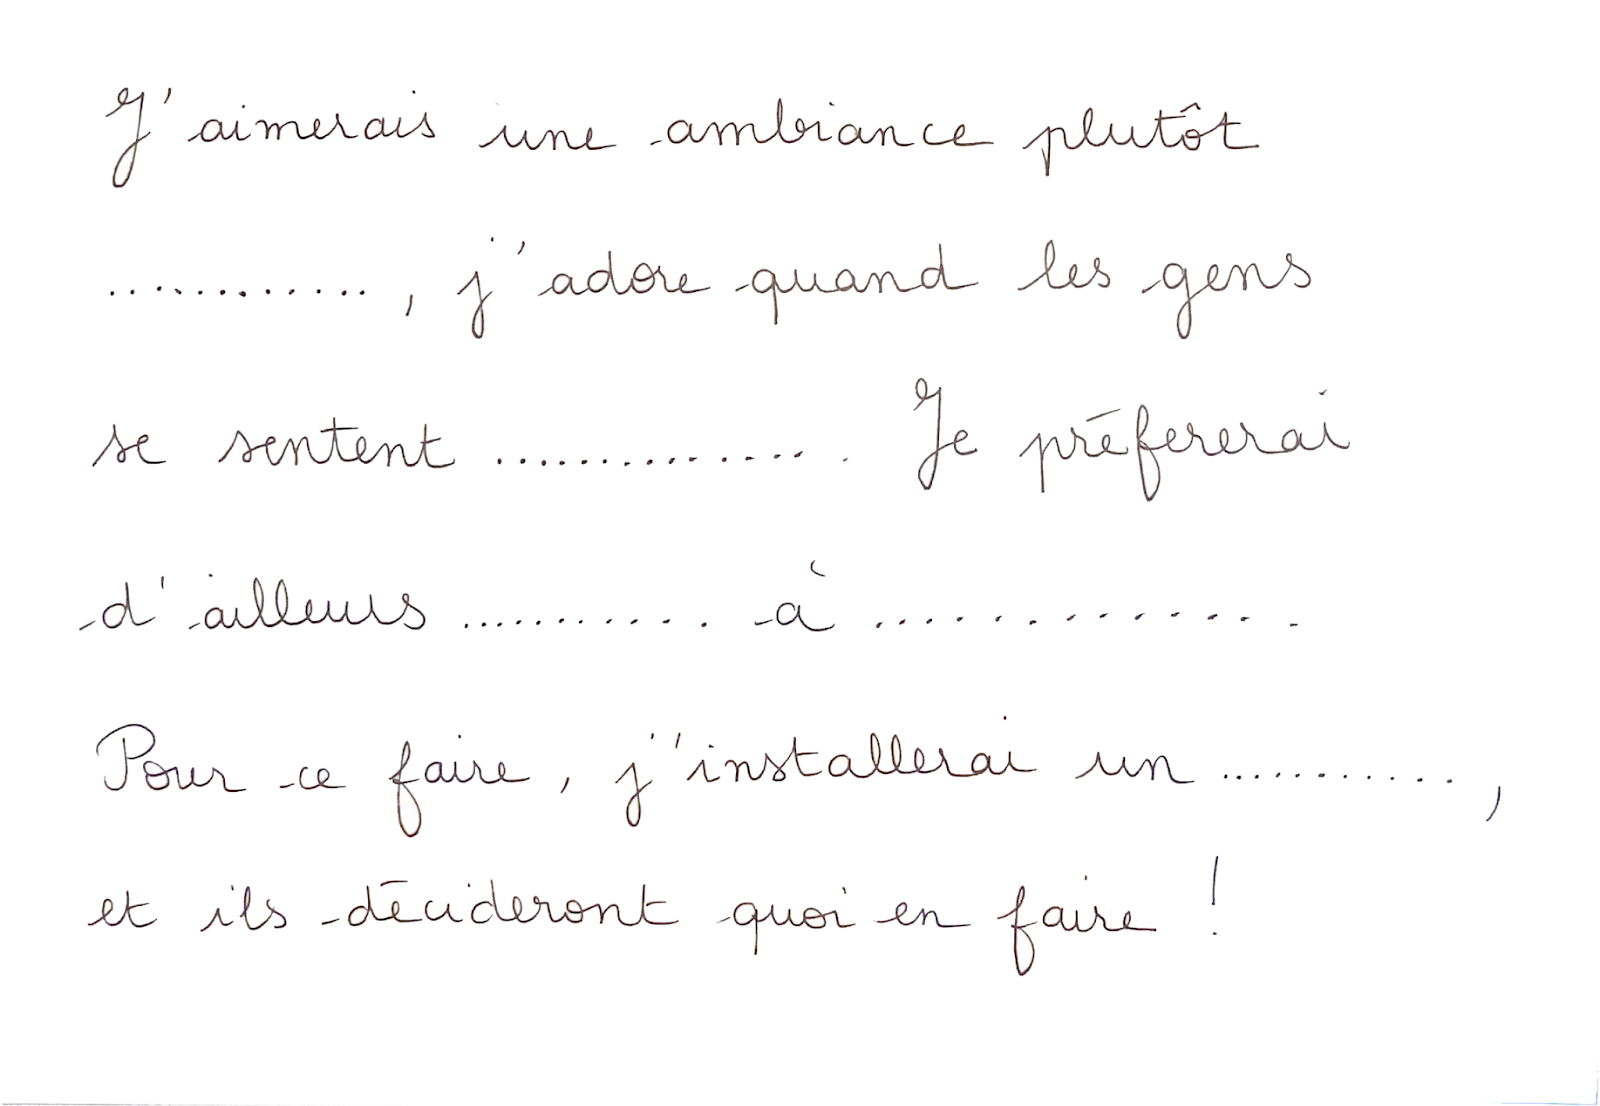 J'aimerais une ambiance plutôt
............, j'adore quand les gens
se sentent .............. Je préfererai
d'ailleurs ........... à ..............
Pour ce faire, j'installerai un ...........,
et ils décideront quoi en faire !